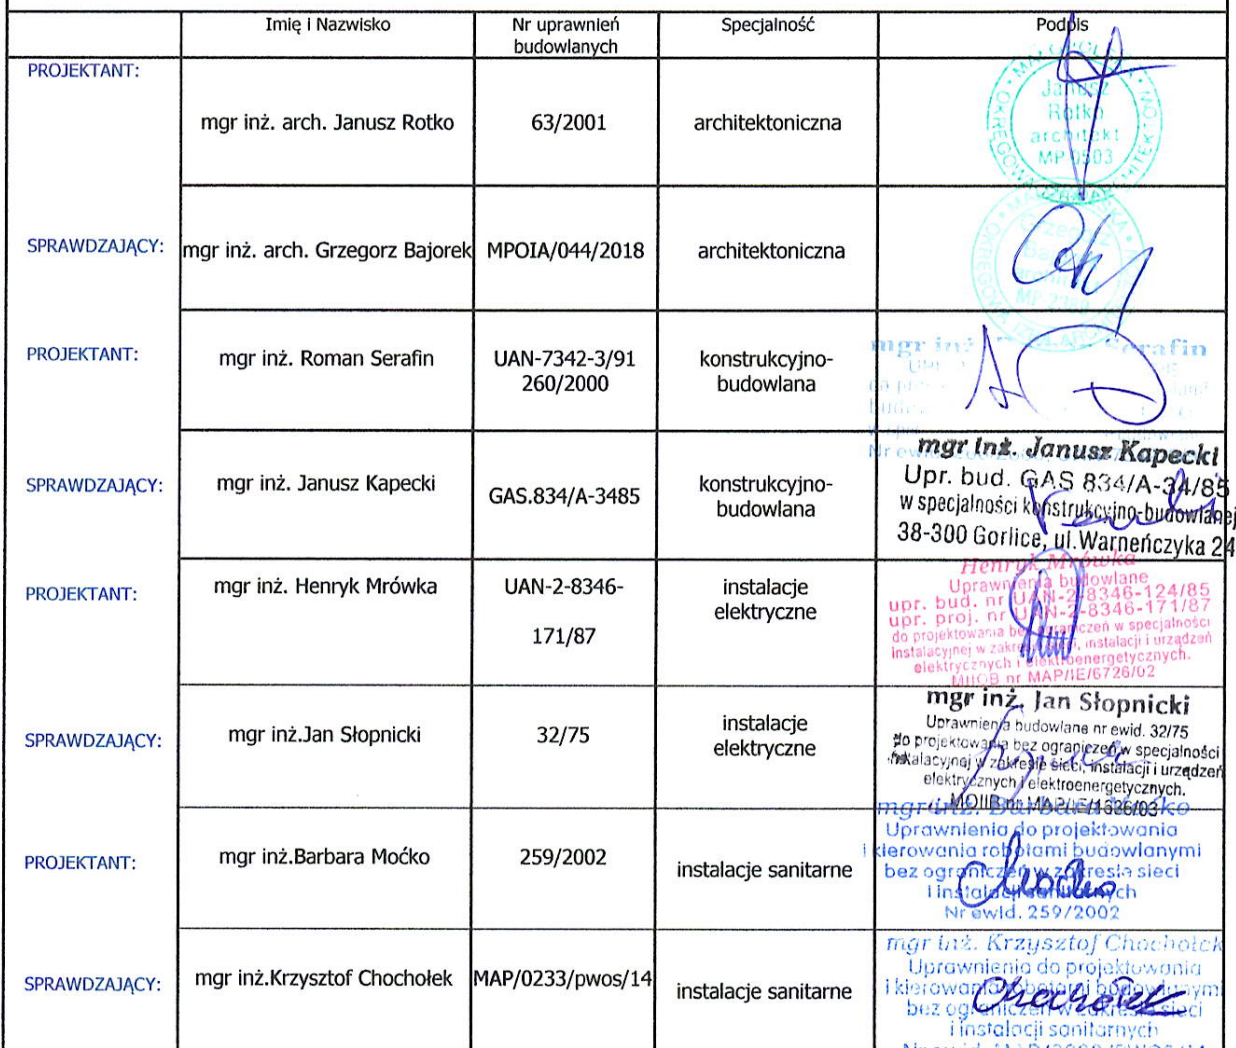 Imię i Nazwisko
Nr uprawnień
budowlanych
Specjalność
Podpis
PROJEKTANT:
mgr inż. arch. Janusz Rotko
63/2001
architektoniczna
Janusz
Rotko
architekt
MP 0503
SPRAWDZAJĄCY:
mgr inż. arch. Grzegorz Bajorek
MPOIA/044/2018
architektoniczna
PROJEKTANT:
mgr inż. Roman Serafin
UAN-7342-3/91
260/2000
konstrukcyjno-
budowlana
mgr inż. Serafin
SPRAWDZAJĄCY:
mgr inż. Janusz Kapecki
GAS.834/A-3485
konstrukcyjno-
budowlana
mgr inż. Janusz Kapecki
Upr. bud. GAS 834/A-34/85
w specjalności konstrukcyjno-budowlanej
38-300 Gorlice, ul.Warneńczyka 24
PROJEKTANT:
mgr inż. Henryk Mrówka
UAN-2-8346-
171/87
instalacje
elektryczne
Henryk Mrówka
Uprawnienia budowlane
upr. bud. nr UAN-2-8346-124/85
upr. proj. nr UAN-2-8346-171/87
do projektowania bez ograniczeń w specjalności
instalacyjnej w zakresie sieci, instalacji i urządzeń
elektrycznych i elektroenergetycznych.
MIIOB nr MAP/IE/6726/02
SPRAWDZAJĄCY:
mgr inż.Jan Słopnicki
32/75
instalacje
elektryczne
mgr inż. Jan Słopnicki
Uprawnienia budowlane nr ewid. 32/75
do projektowania bez ograniczeń w specjalności
instalacyjnej w zakresie sieci, instalacji i urządzeń
elektrycznych i elektroenergetycznych.
MOIIB nr MAP/IE/1626/03
PROJEKTANT:
mgr inż.Barbara Moćko
259/2002
instalacje sanitarne
mgr inż. Barbara Moćko
Uprawnienia do projektowania
i kierowania robotami budowlanymi
bez ograniczeń w zakresie sieci
i instalacji sanitarnych
Nr ewid. 259/2002
SPRAWDZAJĄCY:
mgr inż.Krzysztof Chochołek
MAP/0233/pwos/14
instalacje sanitarne
mgr inż. Krzysztof Chochołek
Uprawnienia do projektowania
i kierowania robotami budowlanymi
bez ograniczeń w zakresie sieci
i instalacji sanitarnych